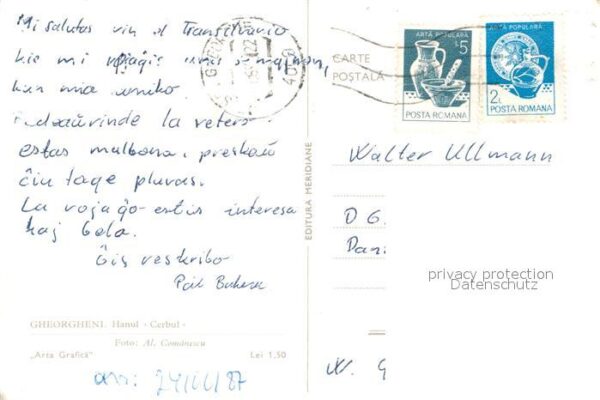 Mi salutas vin el Transilvanio
kie mi vojaĝis unu semajnon,
kun mia amiko
Bedaŭrinde la vetero
estas malbona, preskaŭ
ĉiu tage pluvas.
La vojaĝo estis interesa
kaj bela.
Ĝis reskribo
Pál
GHEORGHENI. Hanul «Cerbul»
Foto: Al. Comănescu
„Arta Grafică”
Lei 1,50
ans: 24/VI/87
EDITURA MERIDIANE
CARTE
POȘTALĂ
ARTĂ POPULARĂ
5
POSTA ROMANA
ARTĂ POPULARĂ
2L
POSTA ROMANA
Walter Ullmann
D G
Dan
W. G
privacy protection
Datenschutz